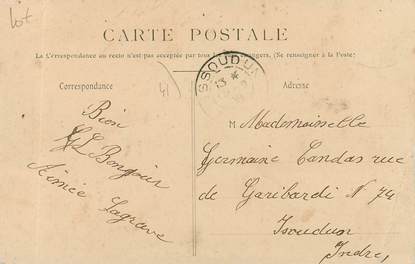 Lot
CARTE POSTALE
La Correspondance au recto n'est pas acceptée par tous les pays étrangers. (Se renseigner à la Poste)
ISSOUDUN
13 *
Correspondance
Adresse
41
Bien
Bonjour
Aimée Lagrave
M Mademoiselle
Germaine Candas rue
de Garibardi N 74
Isoudun
Indre,